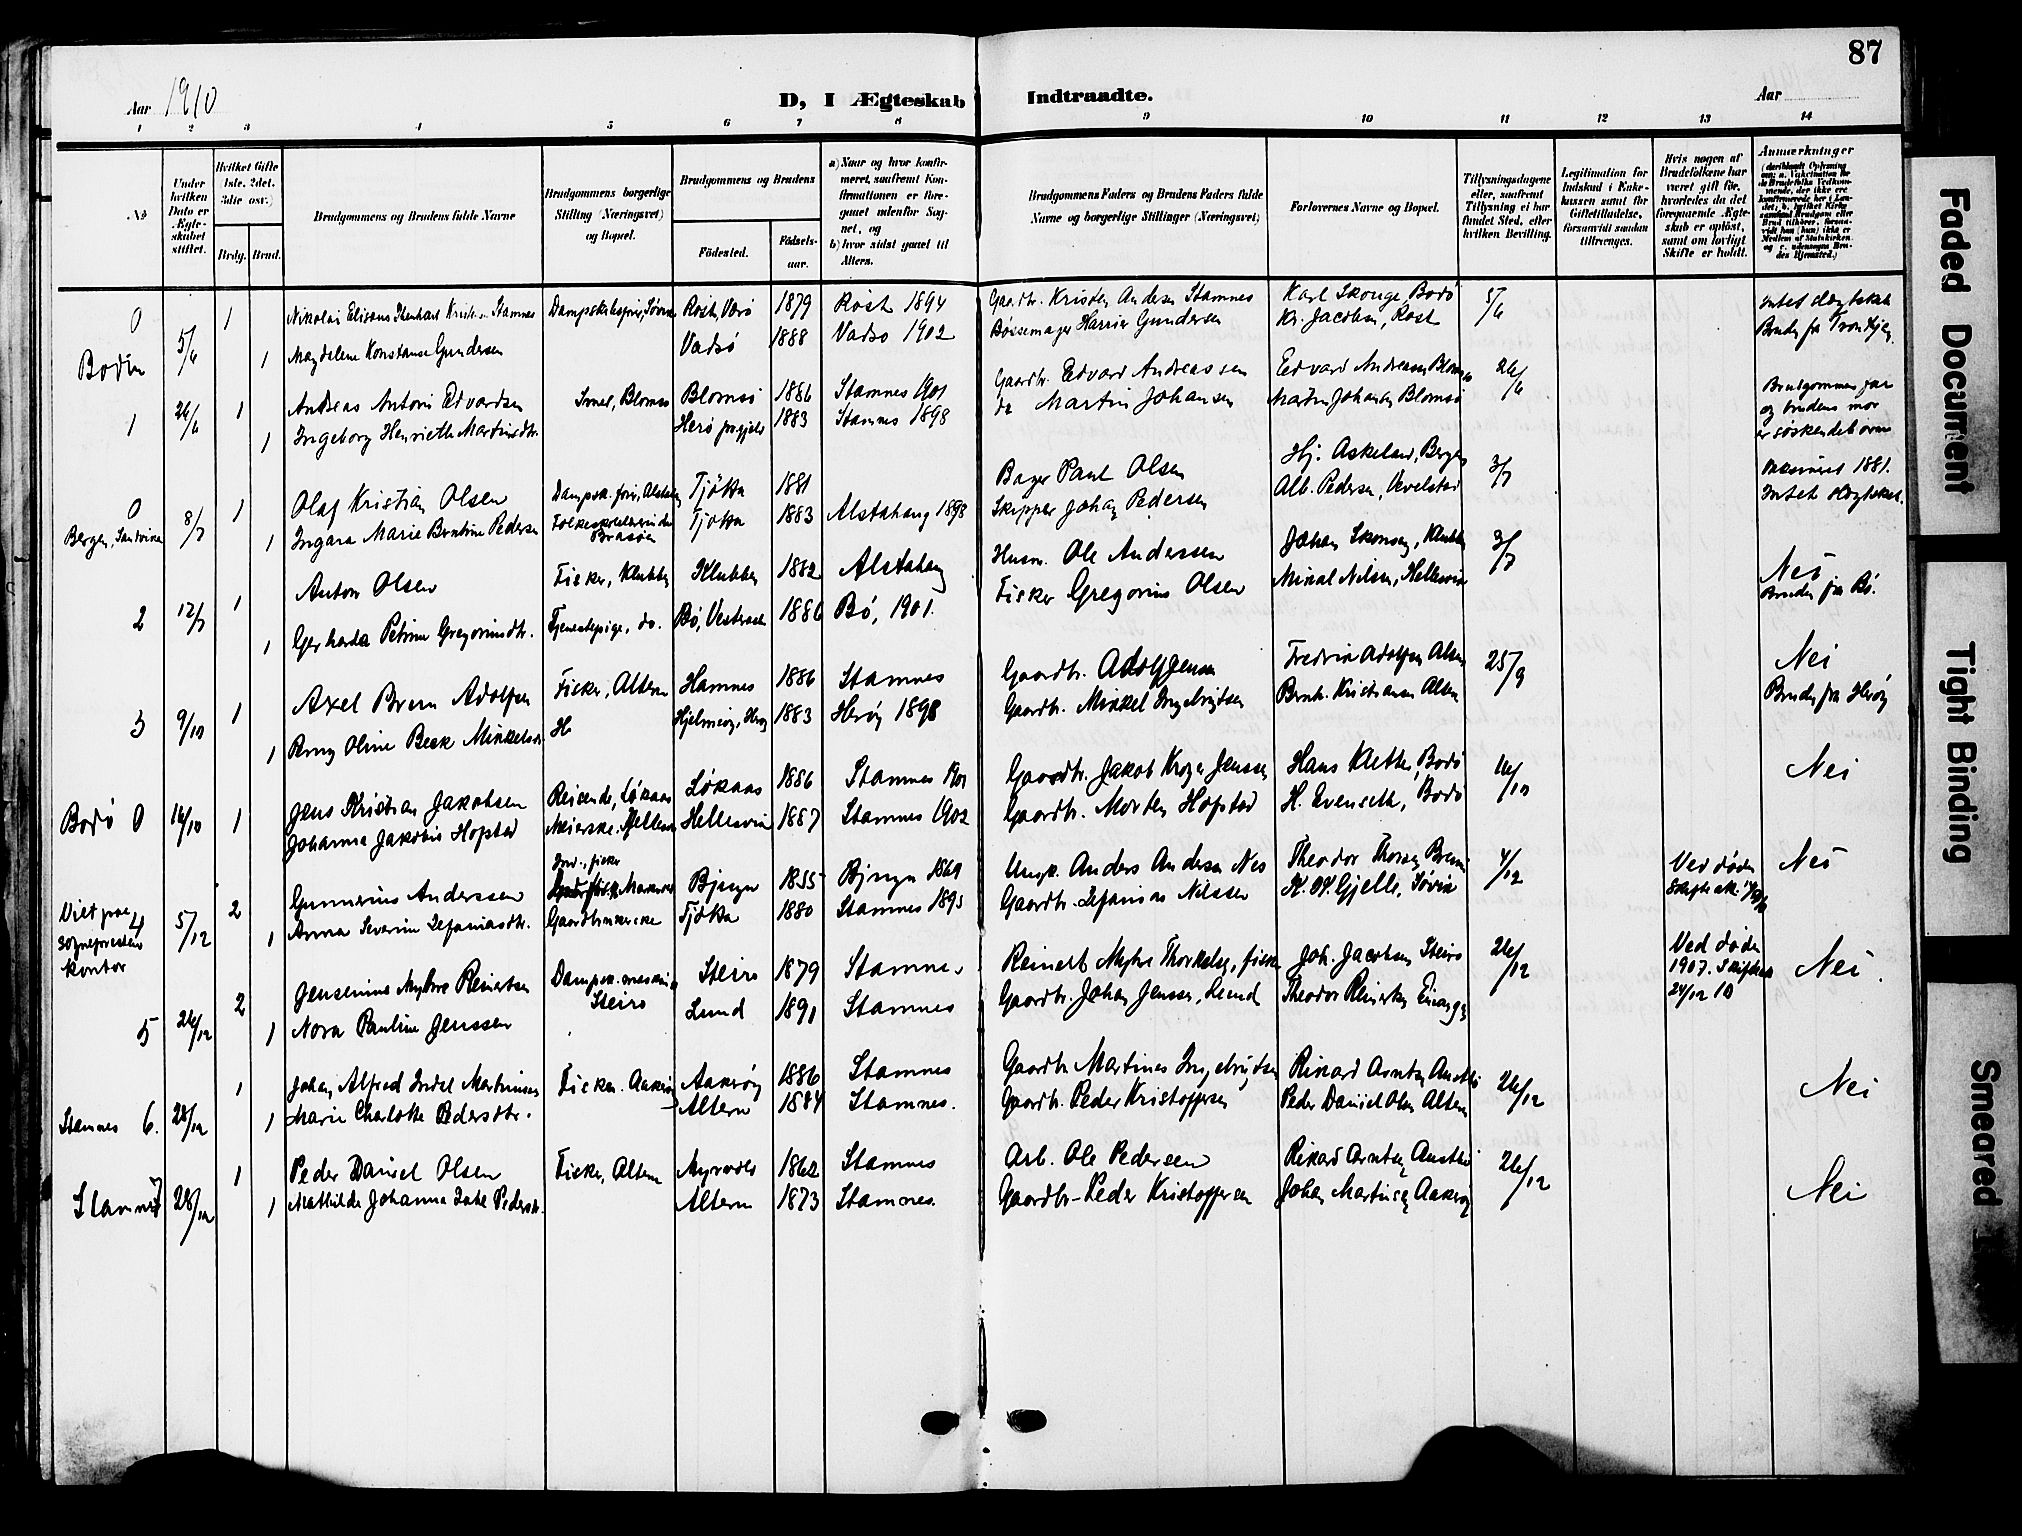 87
Aar 1910
D, I Ægteskab Indtraadte.
Aar
1 2 3 4 5 6 7 8 9 10 11 12 13 14
No
Under hvilken Dato er Ægteskabet stiftet.
Hvilket Gifte (1ste, 2det, 3die osv.)
Brdg. Brud.
Brudgommens og Brudens fulde Navne
Brudgommens borgerlige Stilling (Næringsvei) og Bopæl.
Brudgommens og Brudens
Fødested.
Fødselsaar.
a) Naar og hvor konfirmeret, saafremt Konfirmationen er foregaaet udenfor Sognet, og
b) hvor sidst gaaet til Alters.
Brudgommens Faders og Brudens Faders fulde Navne og borgerlige Stillinger (Næringsvei)
Forlovernes Navne og Bopæl.
Tillysningsdagene eller, saafremt Tillysning ei har fundet Sted, efter hvilken Bevilling.
Legitimation for Indskud i Enkekassen samt for Giftetilladelse, forsaavidt saadan tiltrænges.
Hvis nogen af Brudefolkene har været gift før, hvorledes da det foregaaende Ægteskab er opløst, samt om lovligt Skifte er holdt.
Anmærkninger
0 5/6 1 Nikolai Elisæus Stamnes Røst, Værø 1879 Røst 1894 Gaardbr. Kristen Andersen Stamnes Karl Skouge, Bodø 5/6 Intet slægtskab
Bodin 1 Magdelene Konstanse Gundersen Vadsø 1888 Vadsø 1902 Bøssemager Gundersen Kr. Jacobsen, Røst Bruden fra Trondhjem
1 26/6 1 Andreas Antoni Edvardsen Blomsø 1886 Stamnes 1901 Gaardbr. Edvard Andreassen Edvard Andreasen Blomsø 26/6 Brudgommens far
1 Ingeborg Henriethe Martinsdtr. Herø prgjeld 1883 Stamnes 1898 do Martin Johansen Martin Johansen Blomsø og brudens mor
er søskendebørn
0 8/7 1 Olaf Kristian Olsen Tjøtta 1881 Bager Paul Olsen Hj. Askeland, Bergen 3/7 Vaksineret 1881.
Bergen, Sandviken 1 Ingara Marie Berntine Pedersen Folkeskolelærerinde Brasøen Tjøtta 1883 Alstahaug 1898 Skipper Johan Pedersen Alb. Pedersen, Vevelstad Intet slægtskab.
2 12/7 1 Anton Olsen Fisker, Klubben Klubben 1882 Alstahaug Husm. Ole Anderssen Johan Skonseng, Klubben 3/7 Nei
1 Gerharda Petrine Gregoriusdtr. Tjenestepige, do. Bø, Vesteraalen 1886 Bø, 1901. Fisker Gregorius Olsen Mikal Nilsen, Hellesvik Bruden fra Bø.
3 9/10 1 Axel Brem Adolfsen Fisker, Altern Hamnes 1886 Stamnes Gaardbr. Adolf Jensen Fredrik Adolfsen Altern 25/9 Nei
1 Berny Oline Beck Mikkelsen H Hjelmsøy, Herøy 1883 Herøy 1898 Gaardbr. Mikkel Ingebrigtsen Bernh. Kristiansen Altern Bruden fra Herøy
Bodø 0 14/10 1 Jens Kristian Jakobsen Reisende, Løkaas Løkaas 1886 Stamnes 1901 Gaardbr. Jakob Jenssen Hans Kletten, Bodø 16/10 Nei
Johanna Jakobine Hopstad Meierske, Hellesvik Hellesvik 1887 Stamnes 1902 Gaardbr. Morten Hopstad H. Evenseth, Bodø
Viet paa 4 5/12 2 Gunnerius Anderssen Ind., fisker Bjugn 1855 Bjugn 1869 Ungk. Anders Andersen Nes Theodor 4/12 Ved døden Nei
sogneprestens kontor 1 Anna Severine Zefaniasdtr. Tjøtta 1880 Stamnes 1895 Gaardbr. Zefanias Nilssen Gjelle, Søvik
5 26/12 2 Jensenius Myhre Reinertsen Dampsk. maskinist Steiro Steiro 1879 Stamnes Reinert Myhre Thorkelsen, fisker Joh. Jacobsen Steiro 26/12 Ved døden 1907. Skifteatt. 24/12 10 Nei.
1 Nora Pauline Jenssen Lund 1891 Stamnes Gaardbr. Johan Jenssen, Lund Theodor Reinertsen
Stamnes 6. 28/12 1 Johan Alfred Indal Martinusen Fisker. Aakerøy Aakerøy 1886 Stamnes Gaardbr Martines Ingebrigtsen Rikard Arntsen Austbø 26/12 Nei
1 Marie Charlotte Pedersdtr. Altern 1884 Stamnes. Gaardbr. Peder Kristoffersen Peder Daniel Olsen Altern
Stamnes 7 28/12 1 Peder Daniel Olsen Fisker, Altern Myrvold 1862 Stamnes Arb. Ole Pedersen Rikard Arntsen Austbø 26/12 Nei
1 Mathilde Johanna Pedersdtr. Altern 1873 Stamnes. Gaardbr. Peder Kristoffersen Johan Martinsen Aakerøy
Faded Document
Tight Binding
Smeared